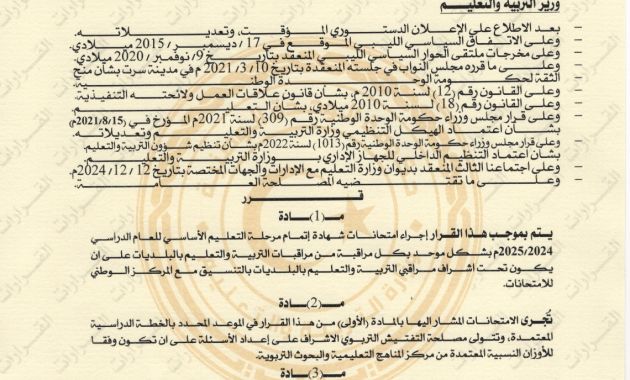 وزير التربية والتعليم
- بعد الاطلاع علي الإعلان الدستوري المؤقت، وتعديلاته.
- وعلى الاتفاق السياسي الليبي الموقع في 17 / ديسمبر / 2015 ميلادي.
- وعلى مخرجات ملتقى الحوار السياسي الليبي المنعقد بتاريخ 9/ نوفمبر / 2020 ميلادي.
- وعلى ما قرره مجلس النواب في جلسته المنعقدة بتاريخ 10 / 3 /2021م في مدينة سرت بشأن منح
الثقة لحكومة الوحدة الوطنية
- وعلى القانون رقم (12) لسنة 2010 م، بشان قانون علاقات العمل ولائحته التنفيذية.
- وعلى القانون رقم (18) لسنة 2010 ميلادي، بشان التعليم.
- وعلى قرار مجلس وزراء حكومة الوحدة الوطنية رقم (309) لسنة 2021م المؤرخ في (2021/8/15م)
بشأن اعتماد الهيكل التنظيمي وزارة التربية والتعليم وتعديلاته.
- وعلى قرار مجلس وزراء حكومة الوحدة الوطنية رقم (1013) لسنة 2022م بشان تنظيم شؤون التربية والتعليم.
بشان اعتماد التنظيم الداخلي للجهاز الإداري بوزارة التربية والتعليم.
- وعلى اجتماعنا الثالث المنعقد بديوان وزارة التعليم مع الإدارات والجهات المختصة بتاريخ 12 / 12 /2024م.
- وعلى ما تقتضيه المصلحة العامة.
قرر
مـ(1)ـادة
يتم بموجب هذا القرار إجراء امتحانات شهادة إتمام مرحلة التعليم الأساسي للعام الدراسي
2025/2024م بشكل موحد بكل مراقبة من مراقبات التربية والتعليم بالبلديات على ان
يكون تحت اشراف مراقبي التربية والتعليم بالبلديات بالتنسيق مع المركز الوطني
للامتحانات.
مـ(2)ـادة
تُجرى الامتحانات المشار اليها بالمادة (الأولى) من هذا القرار في الموعد المحدد بالخطة الدراسية
المعتمدة، وتتولى مصلحة التفتيش التربوي الاشراف على إعداد الأسئلة على ان تكون وفقا
للأوزان النسبية المعتمدة من مركز المناهج التعليمية والبحوث التربوية.
مـ(3)ـادة